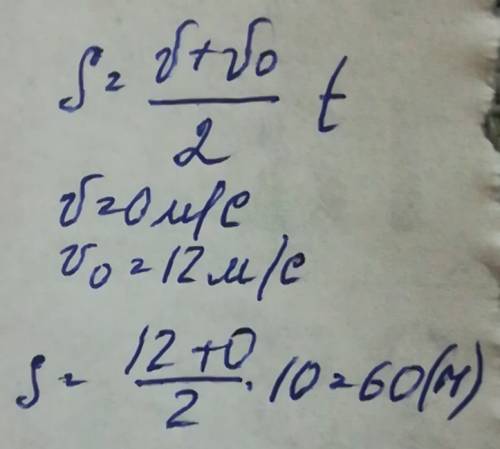 S = (v+v₀)/2 t
v=0 м/с
v₀=12 м/с
S = (12+0)/2 · 10 = 60 (м)